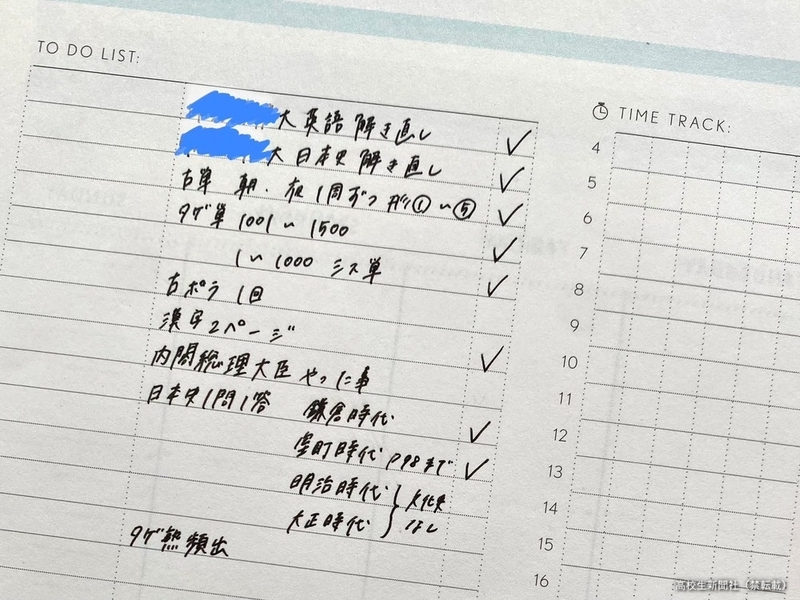 TO DO LIST:
大 英語 解き直し
大 日本史 解き直し
古単 朝・夜 1周ずつ ①〜⑤
タゲ単 1001〜1500
1〜1000 ミス単
古ポラ 1回
漢字2ページ
内閣総理大臣 やった事
日本史1問1答 鎌倉時代
室町時代 P98まで
明治時代
大正時代
文化史なし
タゲ熟頻出
TIME TRACK:
4
5
6
7
8
9
10
11
12
13
14
15
16
高校生新聞社（禁転載）